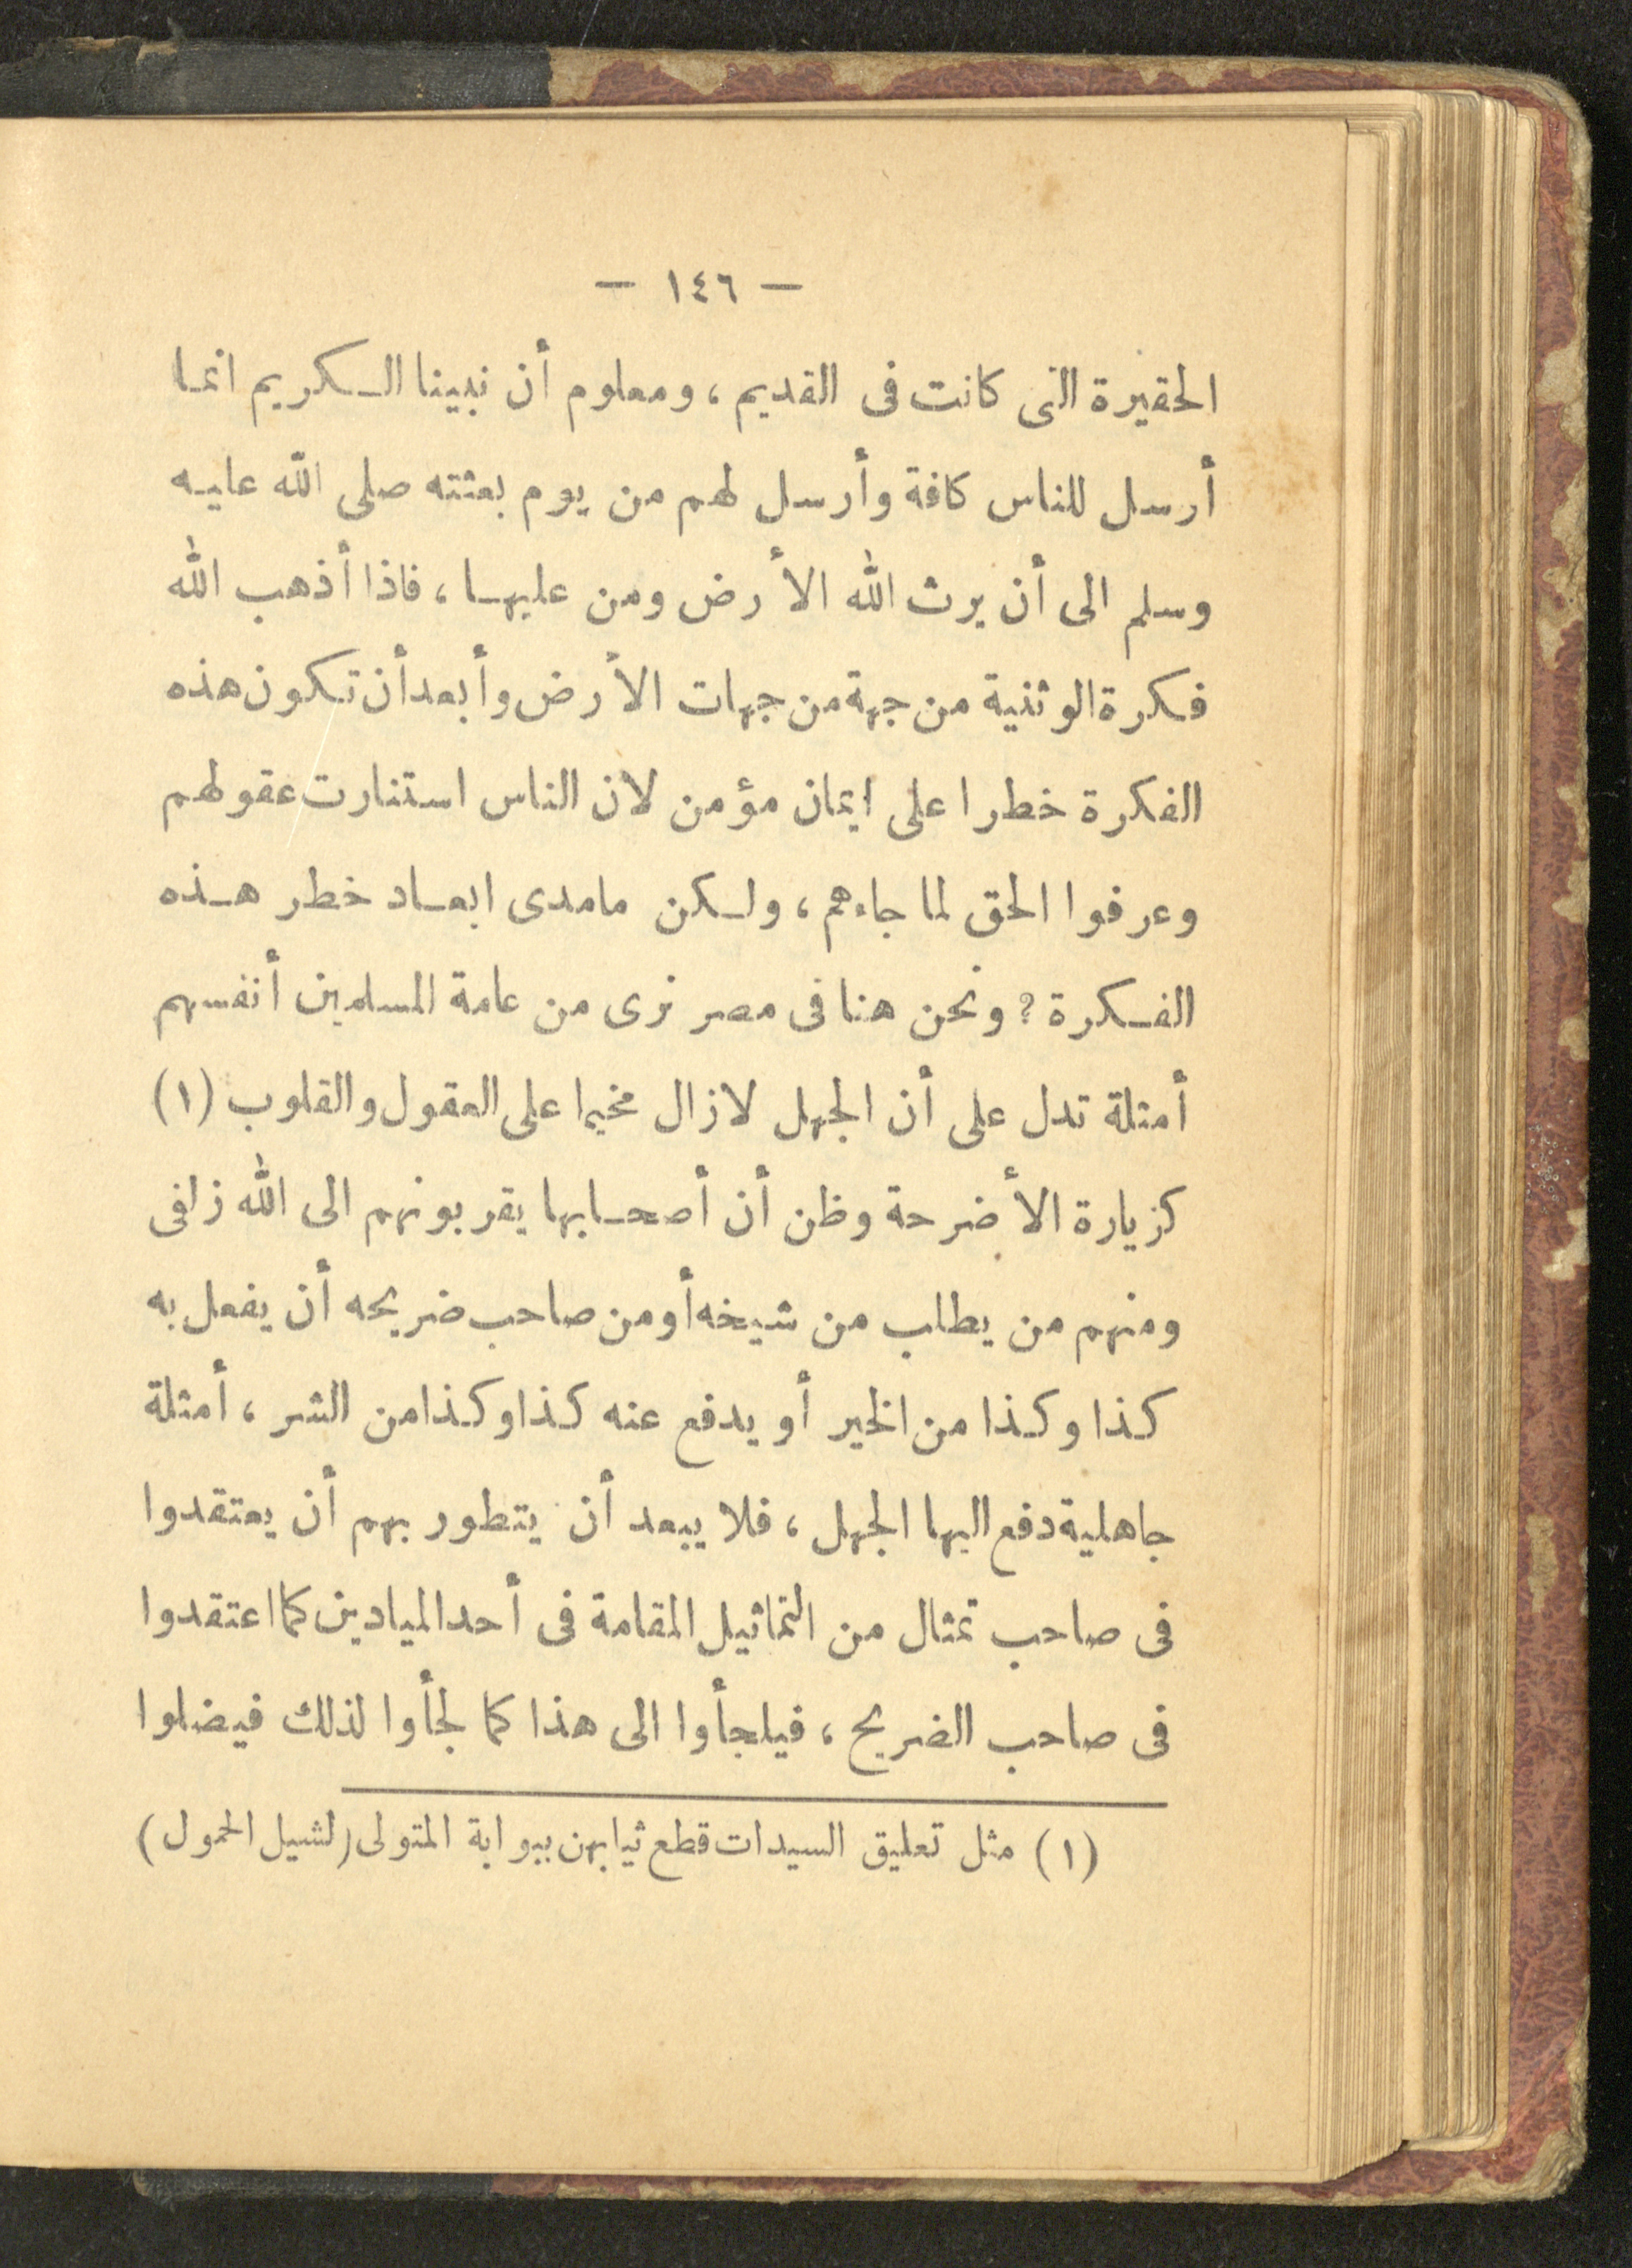 — ١٤٦ —
الحقيرة التى كانت فى القديم ، ومعلوم أن نبينا الكريم انما
أرسل للناس كافة وأرسل لهم من يوم بعثته صلى الله عليه
وسلم الى أن يرث الله الأرض ومن عليها ، فاذا أذهب الله
فكرة الوثنية من جهة من جهات الأرض وأبعد أن تكون هذه
الفكرة خطرا على ايمان مؤمن لان الناس استنارت عقولهم
وعرفوا الحق لما جاءهم ، ولكن مامدى ابعاد خطر هذه
الفكرة ؟ ونحن هنا فى مصر نرى من عامة المسلمين أنفسهم
أمثلة تدل على أن الجهل لازال مخيما على العقول والقلوب (١)
كزيارة الأضرحة وظن أن أصحابها يقربونهم الى الله زلفى
ومنهم من يطلب من شيخه أو من صاحب ضريحه أن يفعل به
كذا وكذا من الخير أو يدفع عنه كذا وكذا من الشر ، أمثلة
جاهلية دفع اليها الجهل ، فلا يبعد أن يتطور بهم أن يعتقدوا
فى صاحب تمثال من التماثيل المقامة فى أحد الميادين كما اعتقدوا
فى صاحب الضريح ، فيلجأوا الى هذا كما لجأوا لذلك فيضلوا
(١) مثل تعليق السيدات قطع ثيابهن ببوابة المتولى (لشيل الحمول)